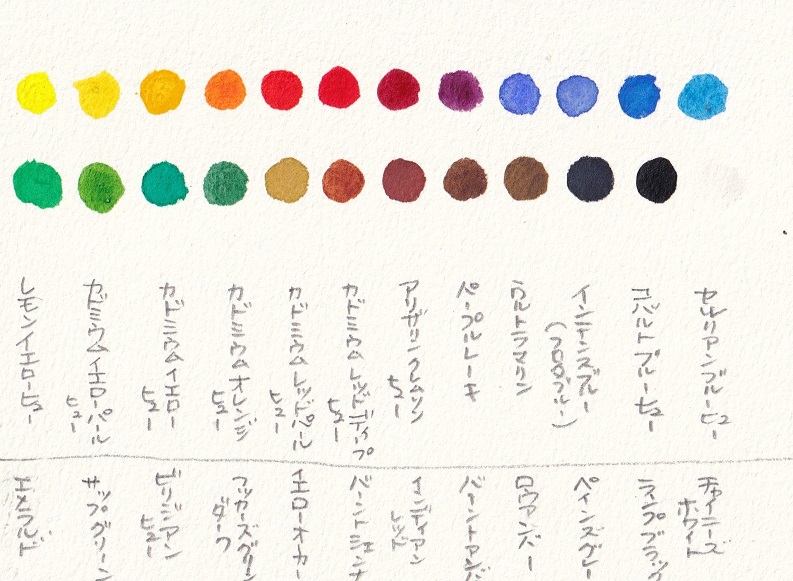 レモンイエローヒュー
カドミウムイエローペール
ヒュー
カドミウムイエロー
ヒュー
カドミウムオレンジ
ヒュー
カドミウムレッドペール
ヒュー
カドミウムレッドディープ
ヒュー
アリザリンクレムソン
ヒュー
パープルレーキ
ウルトラマリン
インテンスブルー
(フタロブルー)
コバルトブルーヒュー
セルリアンブルーヒュー
エメラルド
サップグリーン
ビリジアン
ヒュー
フッカーズグリー
ダーク
イエローオーカー
バーントシェンナ
インディアン
レッド
バーントアンバ
ロウアンバー
ペインズグレー
ランプブラッ
チャイニーズ
ホワイト